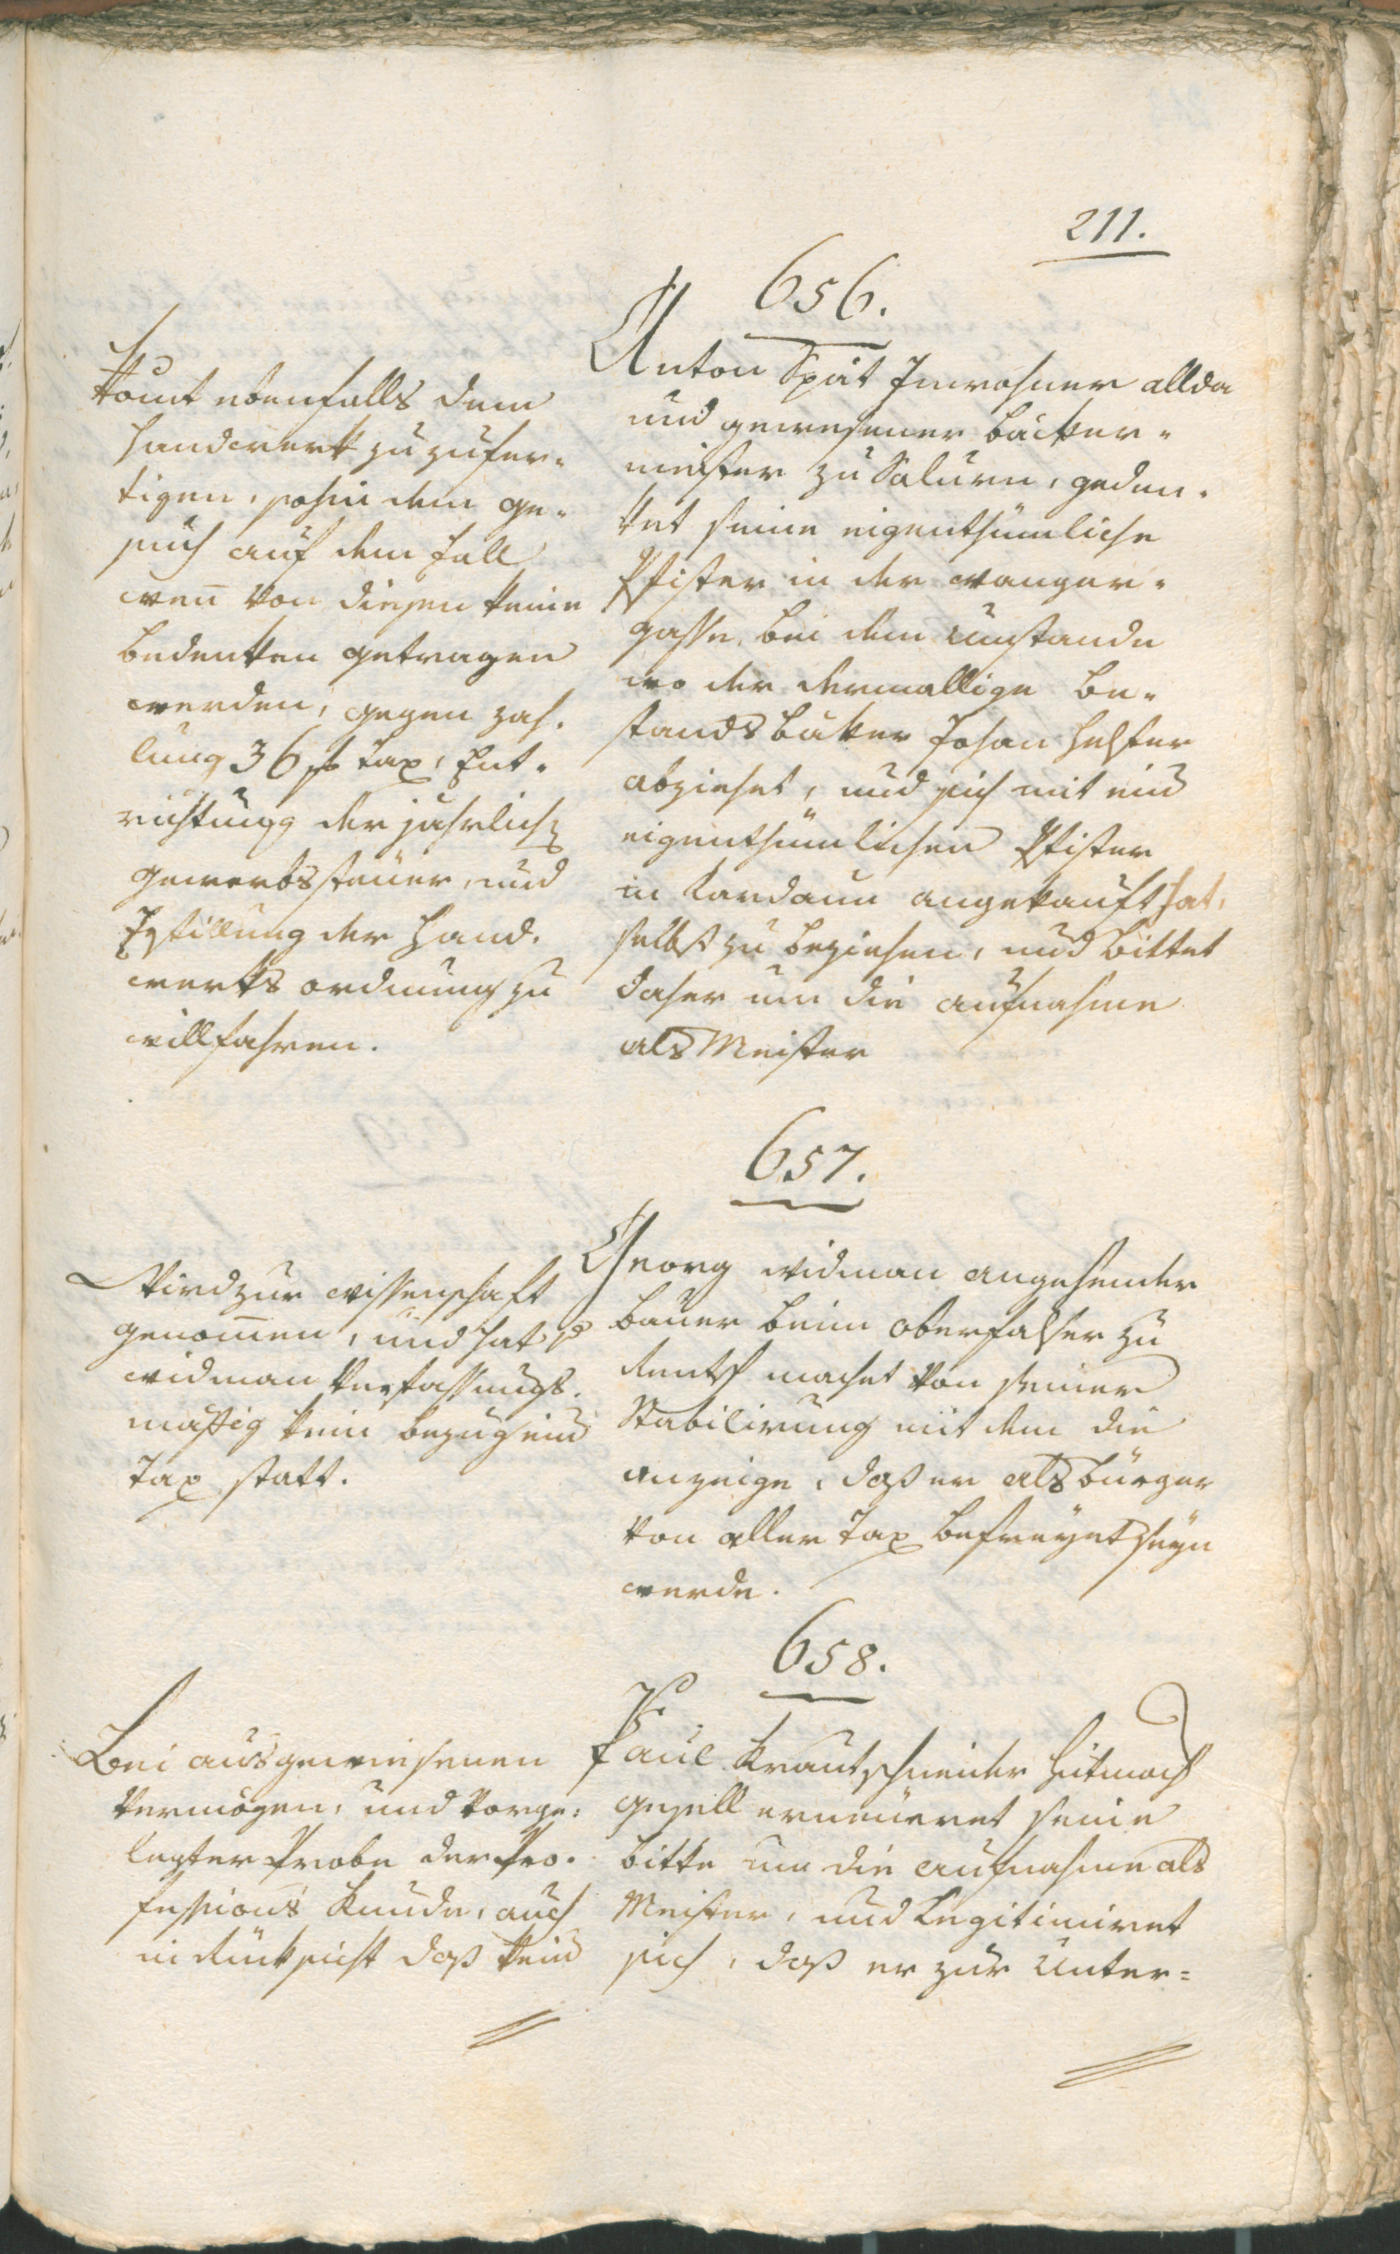 211.
656.
Anton Spät Inwohner allda
und gewesener Bäcker-
meister zu Salurn, geden-
ket seine eigenthümliche
Pfister in der Wanger-
gasse, bei dem Umstande
wo der dermallige Be-
standsbäker Johan
abziehet, und sich mit eine
eigenthümlichen Pfister
in Kardaun angekauft hat,
selbst zu beziehen, und bittet
daher um die Aufnahme
als Meister
Komt ebenfalls dem
Handwerk zuzufer-
tigen, sohin dem Ge-
such auf dem Fall
wen von diesen keine
Bedenken getragen
werden, gegen Zah-
lung 36 f Tax, Ent-
richtung der jährlich
Gewerbssteuer, und
Erfüllung der Hand-
werksordnung zu
willfahren.
657.
Georg Widman angehender
Bauer beim Oberfalser zu
Rentsch machet von seiner
Stabilirung mit dem die
Anzeige, daß er als Bürger
von aller Tax befreyet seyn
werde.
Wird zur Wissenschaft
genomen, und hat
Widman Verfassungs-
mässig kein Bezug eine
Tax statt.
658.
Paul Krautschneider Hutmach
gesell erneueret seine
Bitte um die Aufnahme als
Meister, und Legitimiret
sich, daß er zur Unter=
Bei ausgewiesenen
Vermögen, und vorge=
legter Probe der Pro-
fessions Kunde, auch
in Rücksicht daß kein